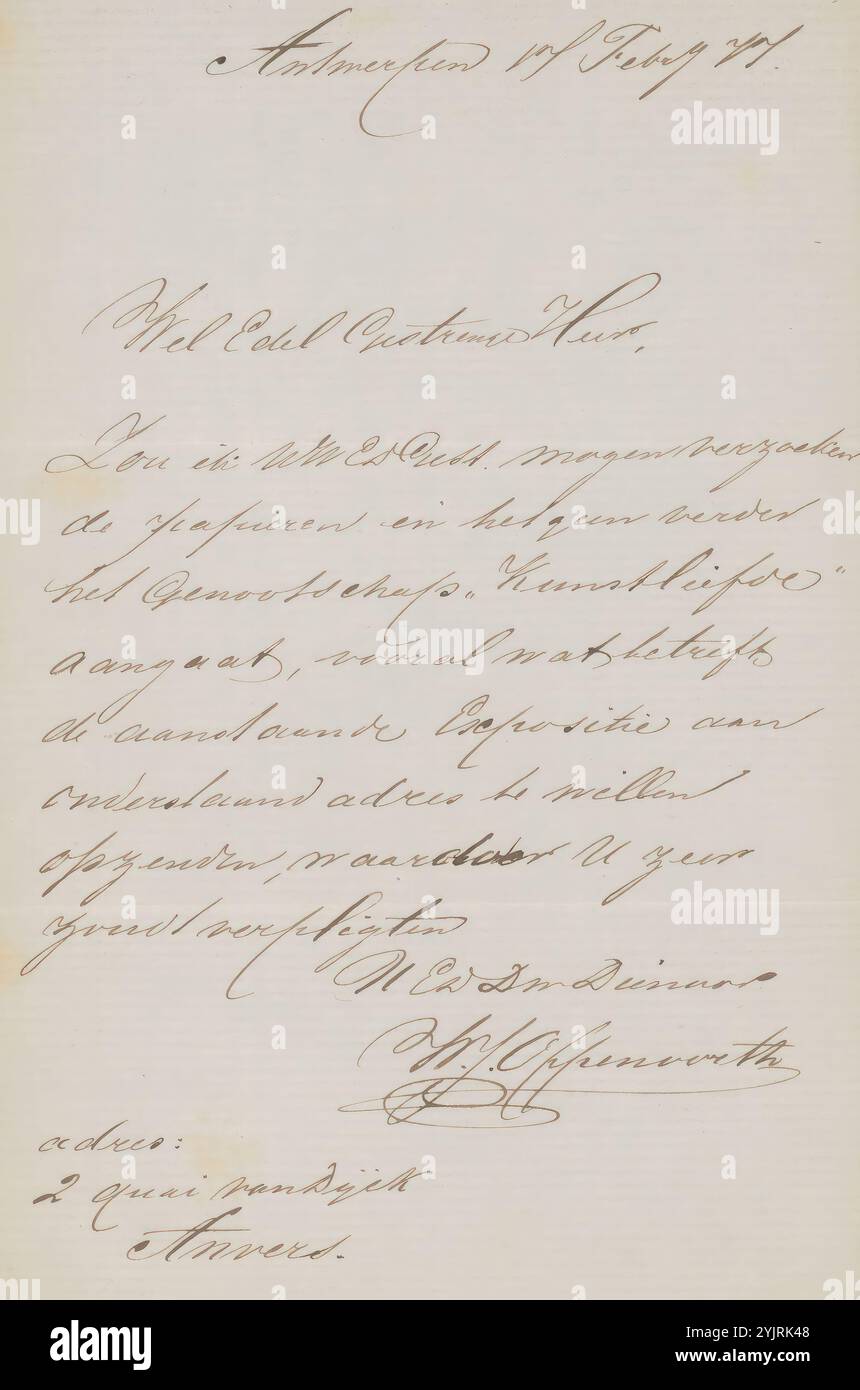 Antwerpen 17 Febry 77.
Wel Edel Gestrenge Heer,
Zou ik UWEdGest. mogen verzoeken
de papieren en hetgeen verder
het Genootschap „Kunstliefde"
aangaat, vooral wat betreft
de aanstaande Expositie aan
onderstaand adres te willen
opzenden, waardoor U zeer
zoudt verpligten
U Ed Dw Dienaar
W.J. Oppenoorth
adres:
2 quai van Dijck
Anvers.
alamy
www.alamy.com
Image ID: 2YJRK48